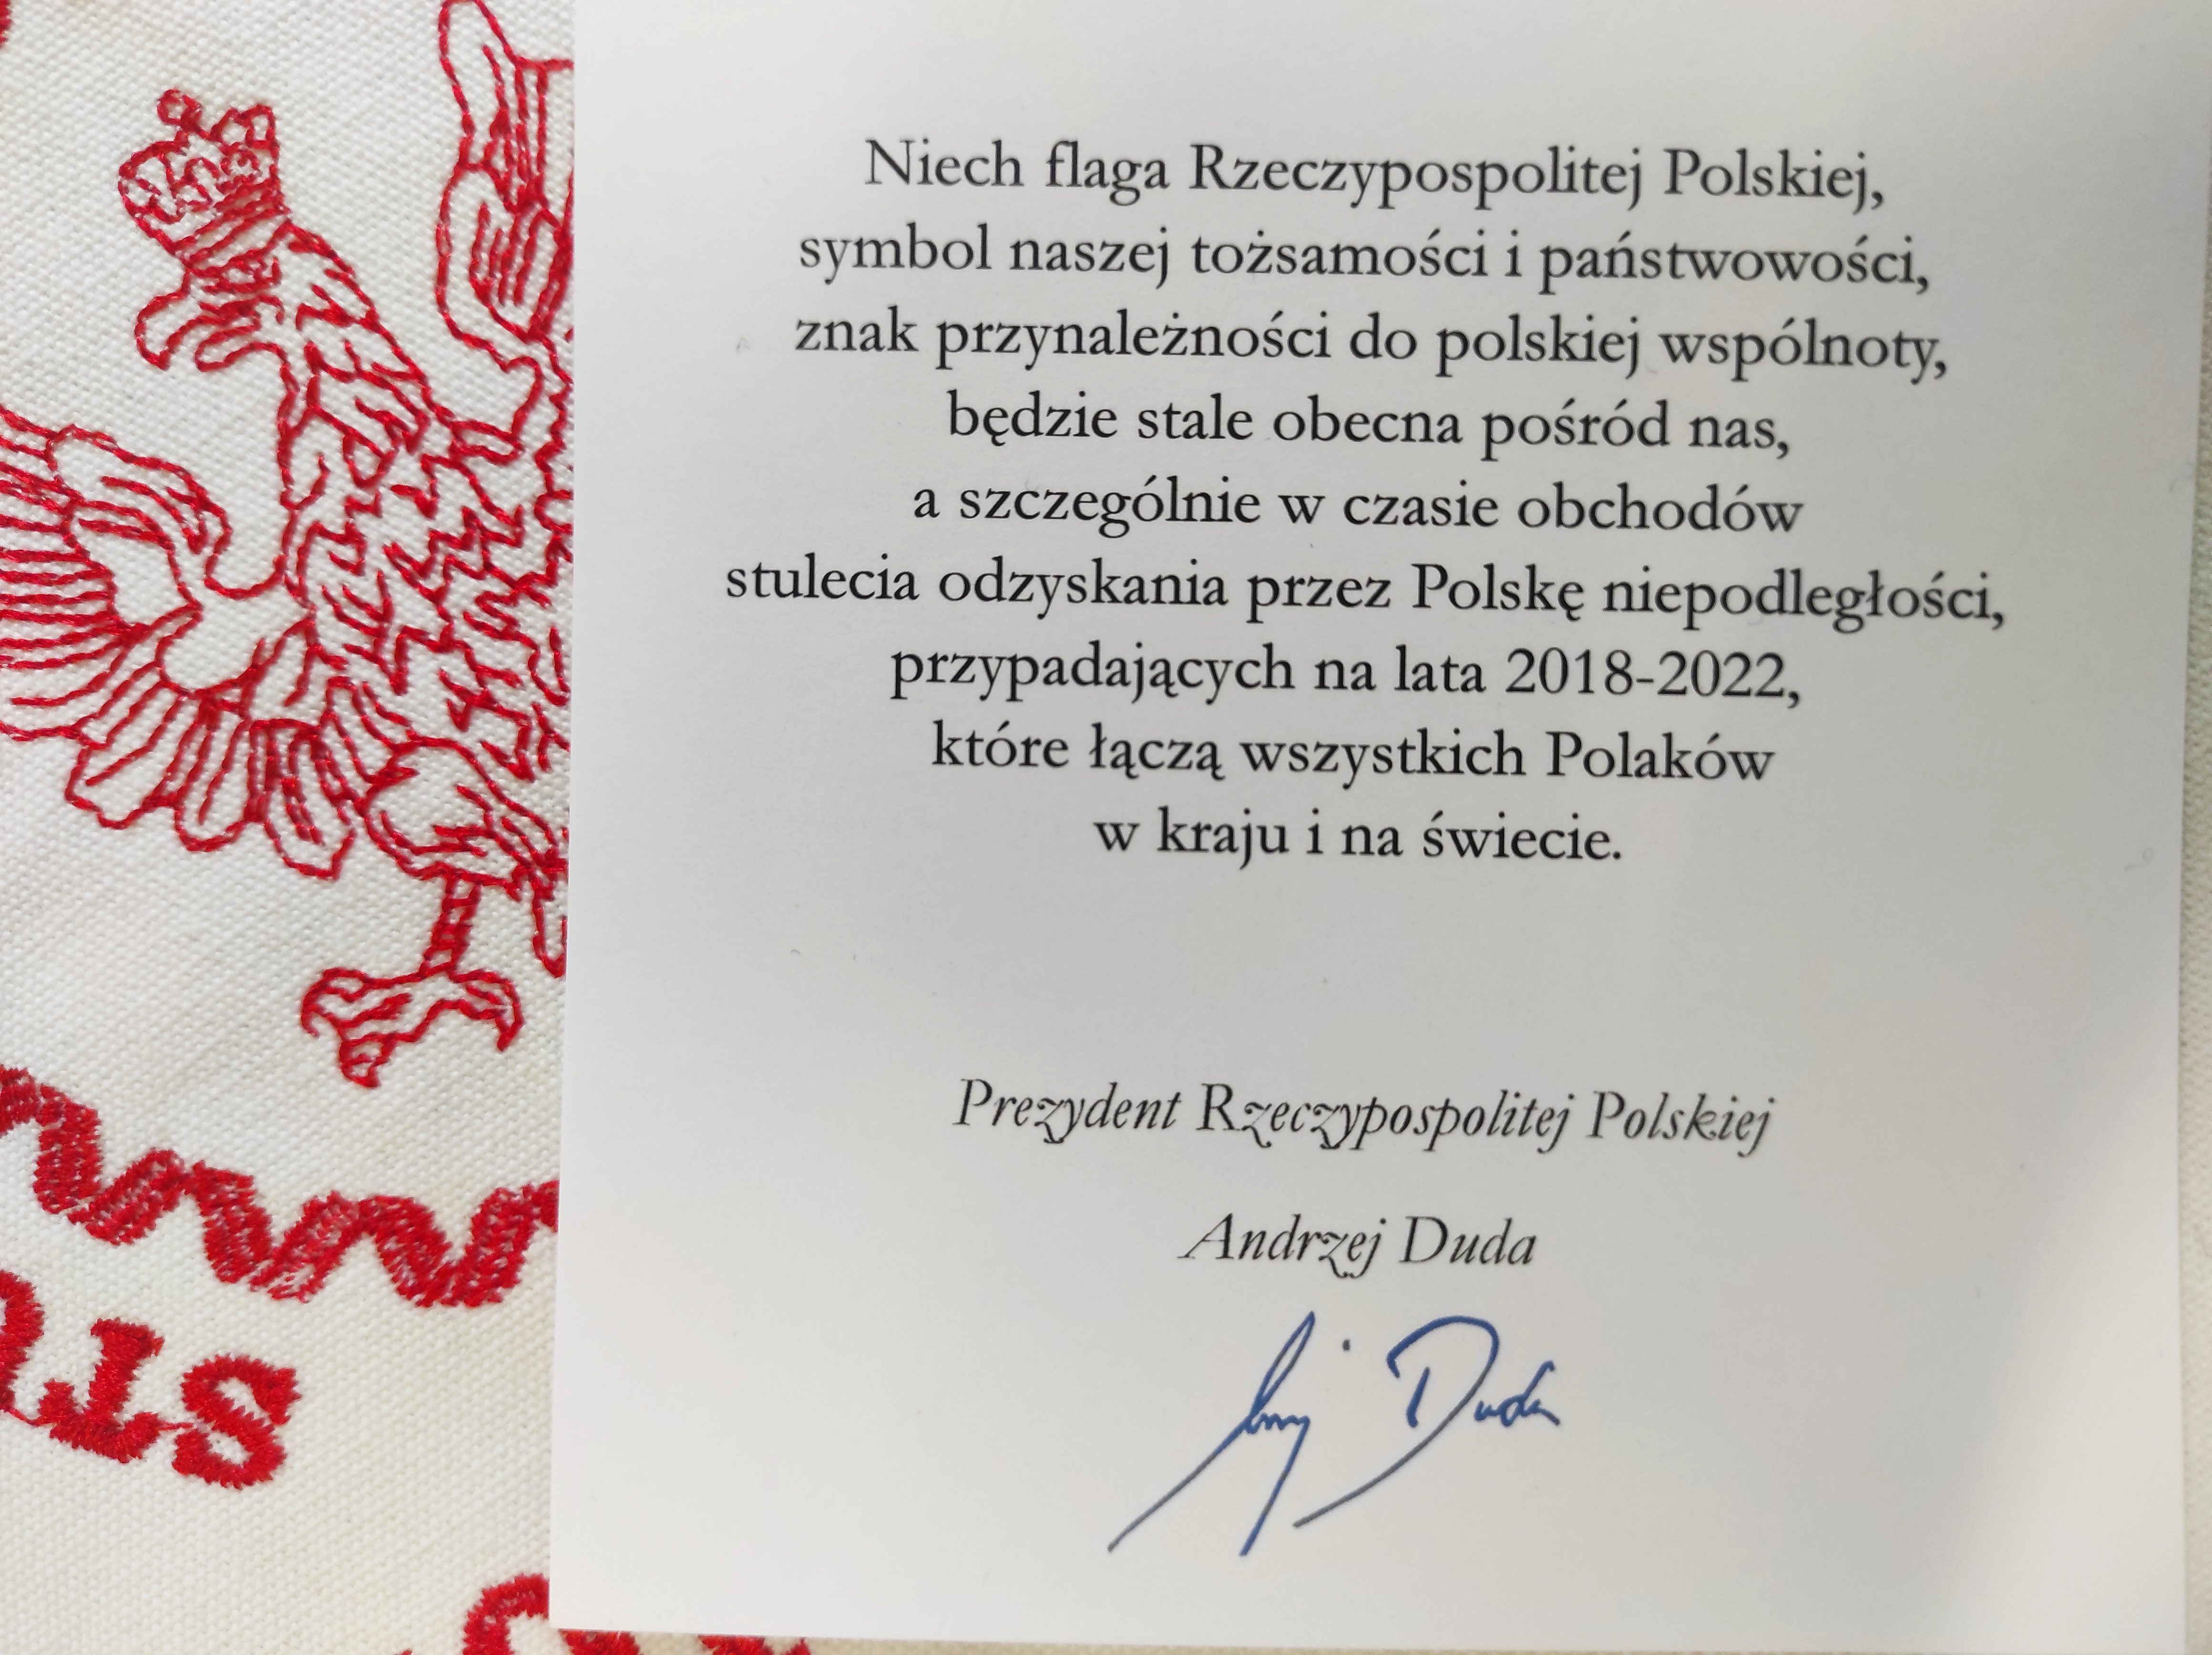 Niech flaga Rzeczypospolitej Polskiej,
symbol naszej tożsamości i państwowości,
znak przynależności do polskiej wspólnoty,
będzie stale obecna pośród nas,
a szczególnie w czasie obchodów
stulecia odzyskania przez Polskę niepodległości,
przypadających na lata 2018-2022,
które łączą wszystkich Polaków
w kraju i na świecie.
Prezydent Rzeczypospolitej Polskiej
Andrzej Duda
Duda